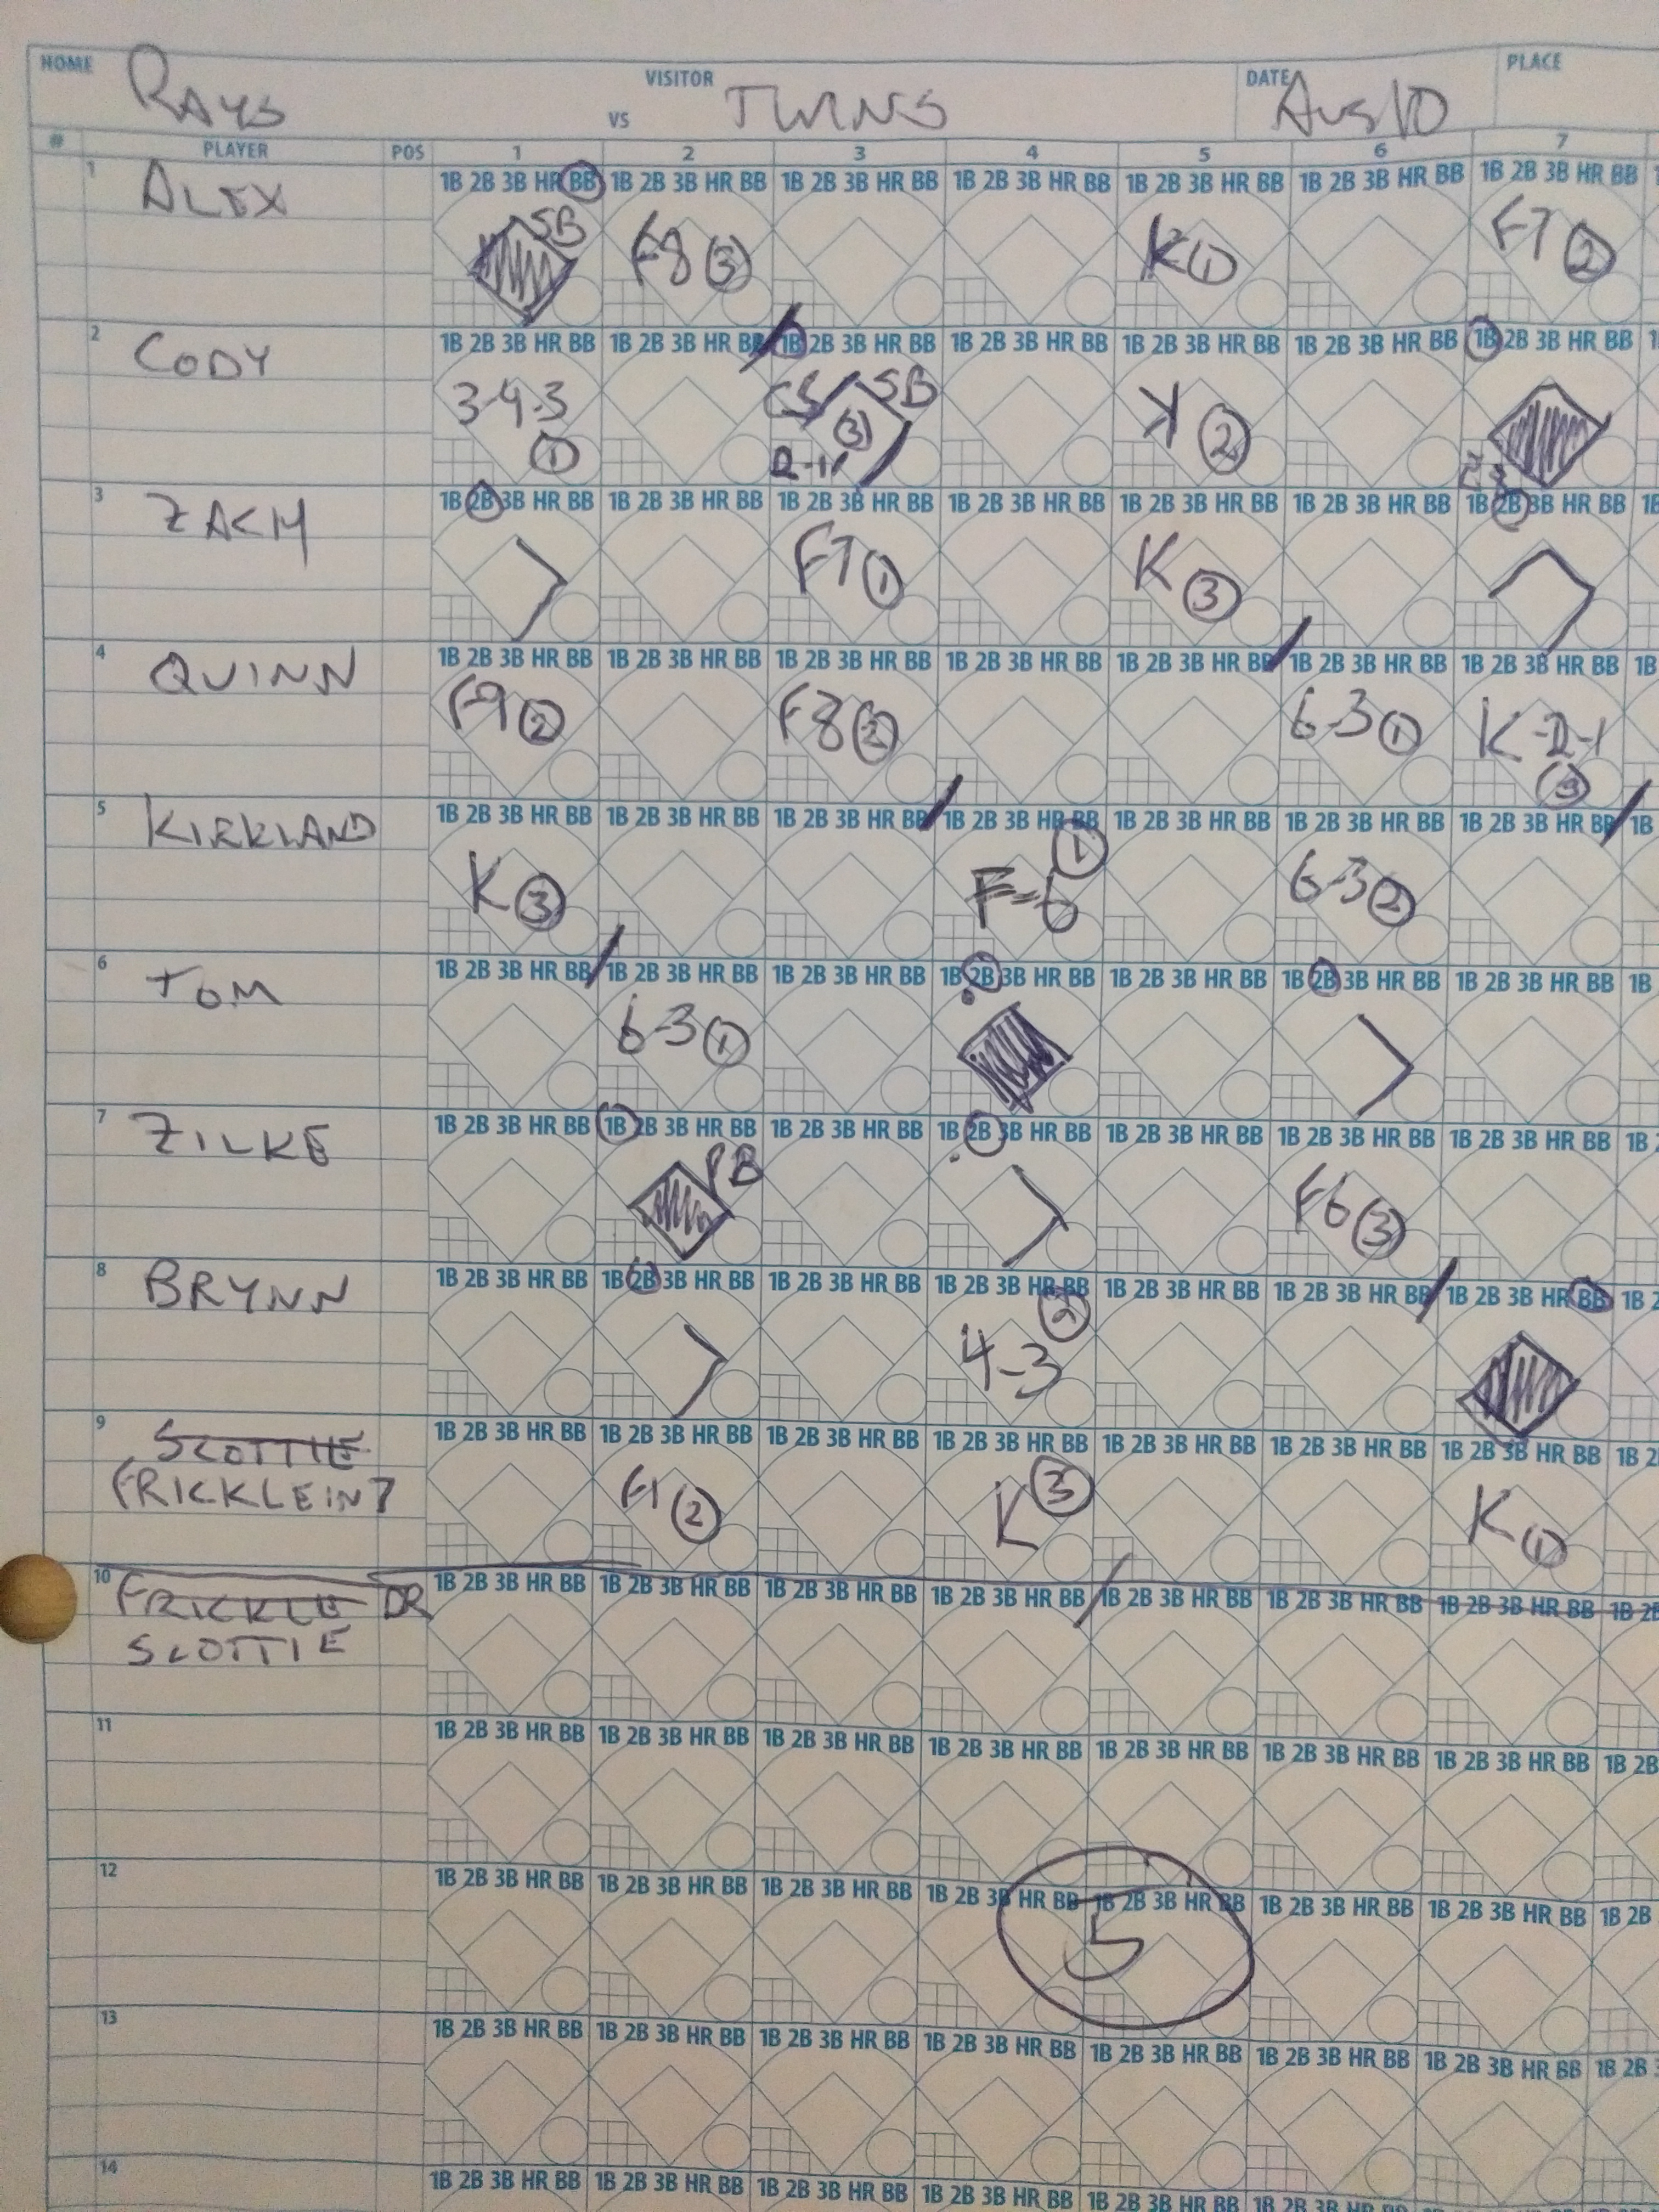 HOME RAYS VISITOR VS TWINS DATE AUG/10 PLACE
# PLAYER POS 1 2 3 4 5 6 7
1 ALEX 1B 2B 3B HR BB 1B 2B 3B HR BB 1B 2B 3B HR BB 1B 2B 3B HR BB 1B 2B 3B HR BB 1B 2B 3B HR BB 1B 2B 3B HR BB 1
SB F8 3 K 1 F7 2
2 CODY 1B 2B 3B HR BB 1B 2B 3B HR BB 1B 2B 3B HR BB 1B 2B 3B HR BB 1B 2B 3B HR BB 1B 2B 3B HR BB 1B 2B 3B HR BB 1
3-4-3 1 CS SB 3 K 2
3 ZACH 1B 2B 3B HR BB 1B 2B 3B HR BB 1B 2B 3B HR BB 1B 2B 3B HR BB 1B 2B 3B HR BB 1B 2B 3B HR BB 1B 2B 3B HR BB 1B
F7 1 K 3
4 QUINN 1B 2B 3B HR BB 1B 2B 3B HR BB 1B 2B 3B HR BB 1B 2B 3B HR BB 1B 2B 3B HR BB 1B 2B 3B HR BB 1B 2B 3B HR BB 1B
F9 2 F8 2 6-3 1 K-2-1 3
5 KIRKLAND 1B 2B 3B HR BB 1B 2B 3B HR BB 1B 2B 3B HR BB 1B 2B 3B HR BB 1B 2B 3B HR BB 1B 2B 3B HR BB 1B 2B 3B HR BB 1B
K 3 F-6 1 6-3 2
6 TOM 1B 2B 3B HR BB 1B 2B 3B HR BB 1B 2B 3B HR BB 1B 2B 3B HR BB 1B 2B 3B HR BB 1B 2B 3B HR BB 1B 2B 3B HR BB 1B
6-3 1
7 ZILKE 1B 2B 3B HR BB 1B 2B 3B HR BB 1B 2B 3B HR BB 1B 2B 3B HR BB 1B 2B 3B HR BB 1B 2B 3B HR BB 1B 2B 3B HR BB 1B 2
PB F6 3
8 BRYNN 1B 2B 3B HR BB 1B 2B 3B HR BB 1B 2B 3B HR BB 1B 2B 3B HR BB 1B 2B 3B HR BB 1B 2B 3B HR BB 1B 2B 3B HR BB 1B 2
4-3 2
9 SCOTTIE 1B 2B 3B HR BB 1B 2B 3B HR BB 1B 2B 3B HR BB 1B 2B 3B HR BB 1B 2B 3B HR BB 1B 2B 3B HR BB 1B 2B 3B HR BB 1B 2
FRICKLE IN 7 F1 2 K 3 K 1
10 FRICKLE DR 1B 2B 3B HR BB 1B 2B 3B HR BB 1B 2B 3B HR BB 1B 2B 3B HR BB 1B 2B 3B HR BB 1B 2B 3B HR BB 1B 2B 3B HR BB 1B 2B
SCOTTIE
11 1B 2B 3B HR BB 1B 2B 3B HR BB 1B 2B 3B HR BB 1B 2B 3B HR BB 1B 2B 3B HR BB 1B 2B 3B HR BB 1B 2B 3B HR BB 1B 2B
12 1B 2B 3B HR BB 1B 2B 3B HR BB 1B 2B 3B HR BB 1B 2B 3B HR BB 1B 2B 3B HR BB 1B 2B 3B HR BB 1B 2B 3B HR BB 1B 2B
5
13 1B 2B 3B HR BB 1B 2B 3B HR BB 1B 2B 3B HR BB 1B 2B 3B HR BB 1B 2B 3B HR BB 1B 2B 3B HR BB 1B 2B 3B HR BB 1B 2B
14 1B 2B 3B HR BB 1B 2B 3B HR BB 1B 2B 3B HR BB 1B 2B 3B HR BB 1B 2B 3B HR BB 1B 2B 3B HR BB